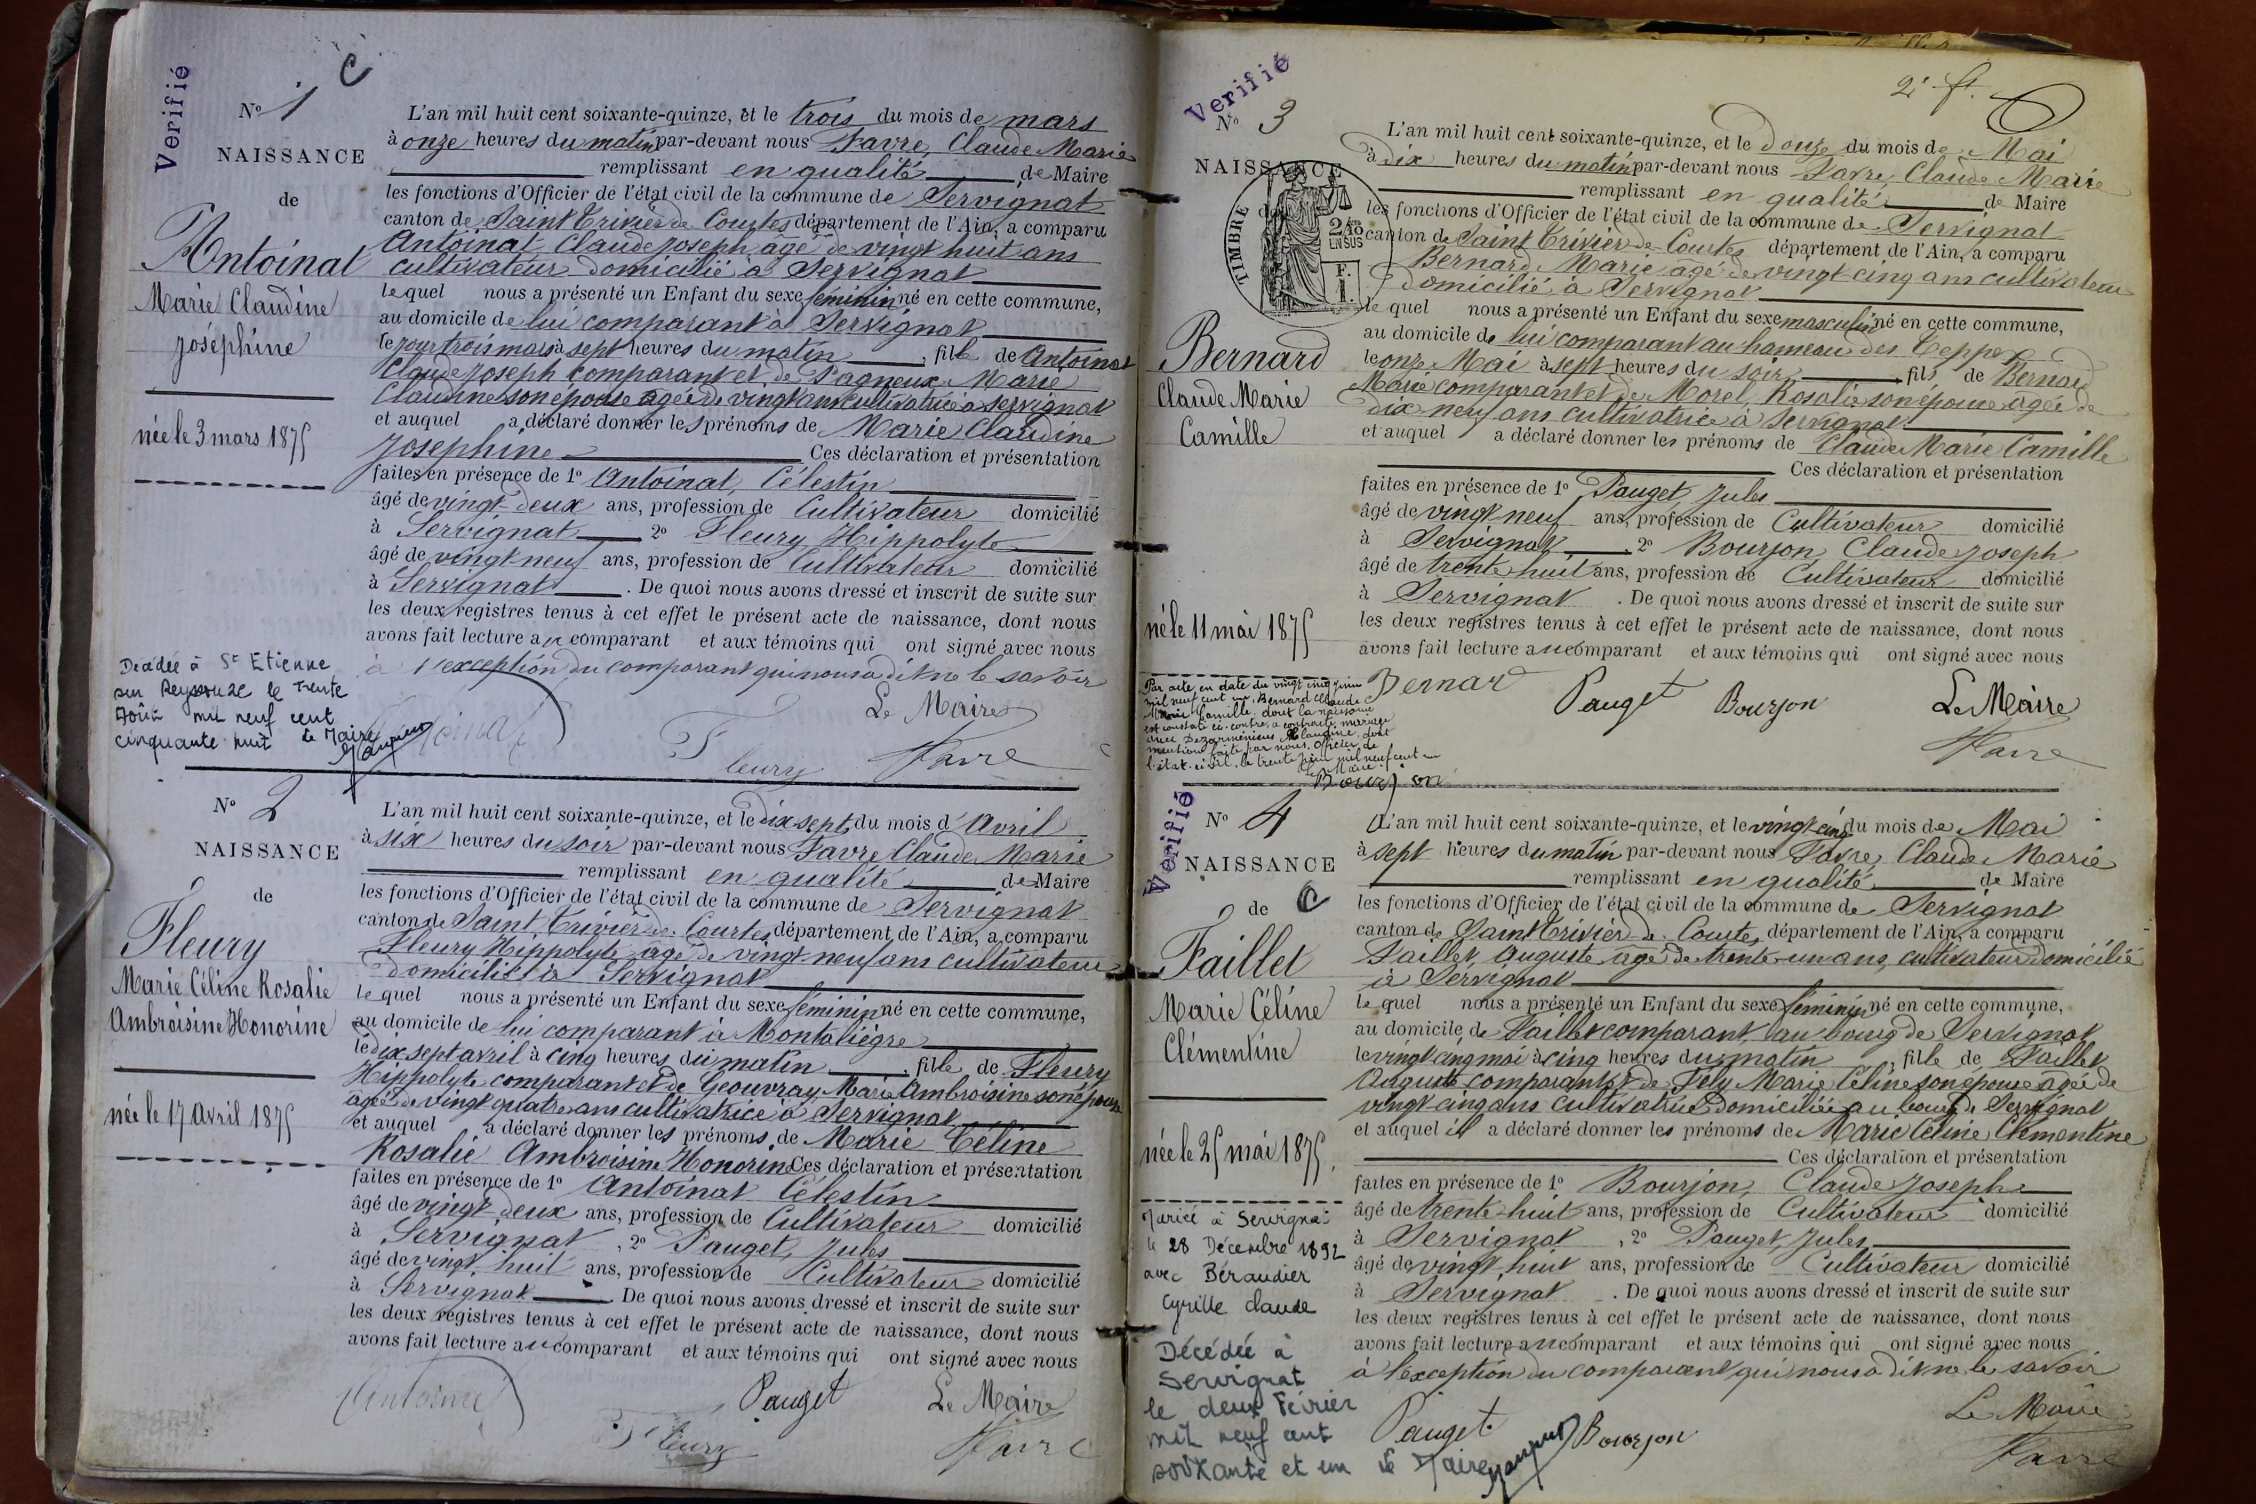 Verifié
C
N° 1
NAISSANCE
de
Antoinat
Marie Claudine
Joséphine
née le 3 mars 1875
Décédée à St Etienne
sur Reyssouze le Trente
Août mil neuf cent
cinquante huit Le Maire
L'an mil huit cent soixante-quinze, et le trois du mois de mars
à onze heures du matin par-devant nous Favre, Claude Marie
remplissant en qualité de Maire
les fonctions d'Officier de l'état civil de la commune de Servignat
canton de Saint Trivier de Courtes département de l'Ain, a comparu
Antoinat Claude Joseph âgé de vingt huit ans
cultivateur domicilié à Servignat
lequel nous a présenté un Enfant du sexe féminin né en cette commune,
au domicile de lui comparant à Servignat
le jour trois mars à sept heures du matin, fille de Antoinat
Claude Joseph comparant et de Pagneux Marie
Claudine son épouse agée de vingt ans cultivatrice à Servignat
et auquel a déclaré donner les prénoms de Marie Claudine
Josephine Ces déclaration et présentation
faites en présence de 1° Antoinat, Célestin
âgé de vingt deux ans, profession de Cultivateur domicilié
à Servignat 2° Fleury Hippolyte
âgé de vingt neuf ans, profession de Cultivateur domicilié
à Servignat. De quoi nous avons dressé et inscrit de suite sur
les deux registres tenus à cet effet le présent acte de naissance, dont nous
avons fait lecture au comparant et aux témoins qui ont signé avec nous
à l'exception du comparant qui nous a dit ne le savoir
Le Maire
Antoinat
Fleury Favre
N° 2
NAISSANCE
de
Fleury
Marie Céline Rosalie
Ambroisine Honorine
née le 17 avril 1875
L'an mil huit cent soixante-quinze, et le dix sept du mois d'Avril
à six heures du soir par-devant nous Favre Claude Marie
remplissant en qualité de Maire
les fonctions d'Officier de l'état civil de la commune de Servignat
canton de Saint Trivier de Courtes département de l'Ain, a comparu
Fleury Hippolyte age de vingt neuf ans cultivateur
domicilié à Servignat
lequel nous a présenté un Enfant du sexe féminin né en cette commune,
au domicile de lui comparant à Montaliègre
le dix sept avril à cinq heures du matin, fille de Fleury
Hippolyte comparant et de Geouvray Marie Ambroisine son épouse
agée de vingt quatre ans cultivatrice à Servignat
et auquel a déclaré donner les prénoms de Marie Céline
Rosalie Ambroisine Honorine Ces déclaration et présentation
faites en présence de 1° Antoinat Célestin
âgé de vingt deux ans, profession de Cultivateur domicilié
à Servignat, 2° Pauget, Jules
âgé de vingt huit ans, profession de Cultivateur domicilié
à Servignat. De quoi nous avons dressé et inscrit de suite sur
les deux registres tenus à cet effet le présent acte de naissance, dont nous
avons fait lecture au comparant et aux témoins qui ont signé avec nous
Antoinat Pauget Le Maire
Fleury Favre
2e ft.
Verifié
N° 3
NAISSANCE
de
TIMBRE
2/10
EN SUS
F.
I.
Bernard
Claude Marie
Camille
né le 11 mai 1875
Par acte en date du vingt cinq juin
mil neuf cent un, Bernard Claude
Marie Camille, dont la naissance
est constatée ci-contre, a contracté mariage
avec Desarménieux Claudine, dont
mention faite par nous, Officier de
l'état-civil, le trente juin mil neuf cent un
Le Maire
Bourjon
L'an mil huit cent soixante-quinze, et le douze du mois de Mai
à dix heures du matin par-devant nous Favre, Claude Marie
remplissant en qualité de Maire
les fonctions d'Officier de l'état civil de la commune de Servignat
canton de Saint Trivier de Courtes département de l'Ain, a comparu
Bernard Marie agé de vingt cinq ans cultivateur
domicilié à Servignat
lequel nous a présenté un Enfant du sexe masculin né en cette commune,
au domicile de lui comparant au hameau des Teppes
le onze Mai à sept heures du soir, fils de Bernard
Marie comparant et de Morel, Rosalie son épouse agée de
dix neuf ans cultivatrice à Servignat
et auquel a déclaré donner les prénoms de Claude Marie Camille
Ces déclaration et présentation
faites en présence de 1° Pauget Jules
âgé de vingt neuf ans, profession de Cultivateur domicilié
à Servignat, 2° Bourjon Claude Joseph
âgé de trente huit ans, profession de Cultivateur domicilié
à Servignat. De quoi nous avons dressé et inscrit de suite sur
les deux registres tenus à cet effet le présent acte de naissance, dont nous
avons fait lecture au comparant et aux témoins qui ont signé avec nous
Bernard Pauget Bourjon Le Maire
Favre
Verifié
N° 4
NAISSANCE
de C
Faillet
Marie Céline
Clémentine
née le 25 mai 1875.
Mariée à Servignat
le 28 Décembre 1892
avec Béraudier
Cyrille Claude
Décédée à
Servignat
le deux Février
mil neuf cent
soixante et un Le Maire
L'an mil huit cent soixante-quinze, et le vingt cinq du mois de Mai
à sept heures du matin par-devant nous Favre, Claude Marie
remplissant en qualité de Maire
les fonctions d'Officier de l'état civil de la commune de Servignat
canton de Saint Trivier de Courtes, département de l'Ain, a comparu
Faillet, Auguste agé de trente un ans, cultivateur domicilié
à Servignat
lequel nous a présenté un Enfant du sexe féminin né en cette commune,
au domicile de Faillet comparant, au bourg de Servignat
le vingt cinq mai à cinq heures du matin, fille de Faillet
Auguste comparant et de Fély Marie Céline son épouse agée de
vingt cinq ans cultivatrice domiciliée au bourg de Servignat
et auquel il a déclaré donner les prénoms de Marie Céline Clémentine
Ces déclaration et présentation
faites en présence de 1° Bourjon, Claude Joseph
âgé de trente-huit ans, profession de Cultivateur domicilié
à Servignat, 2° Pauget, Jules
âgé de vingt huit ans, profession de Cultivateur domicilié
à Servignat. De quoi nous avons dressé et inscrit de suite sur
les deux registres tenus à cet effet le présent acte de naissance, dont nous
avons fait lecture au comparant et aux témoins qui ont signé avec nous
à l'exception du comparant qui nous a dit ne le savoir
Pauget Bourjon Le Maire
Favre